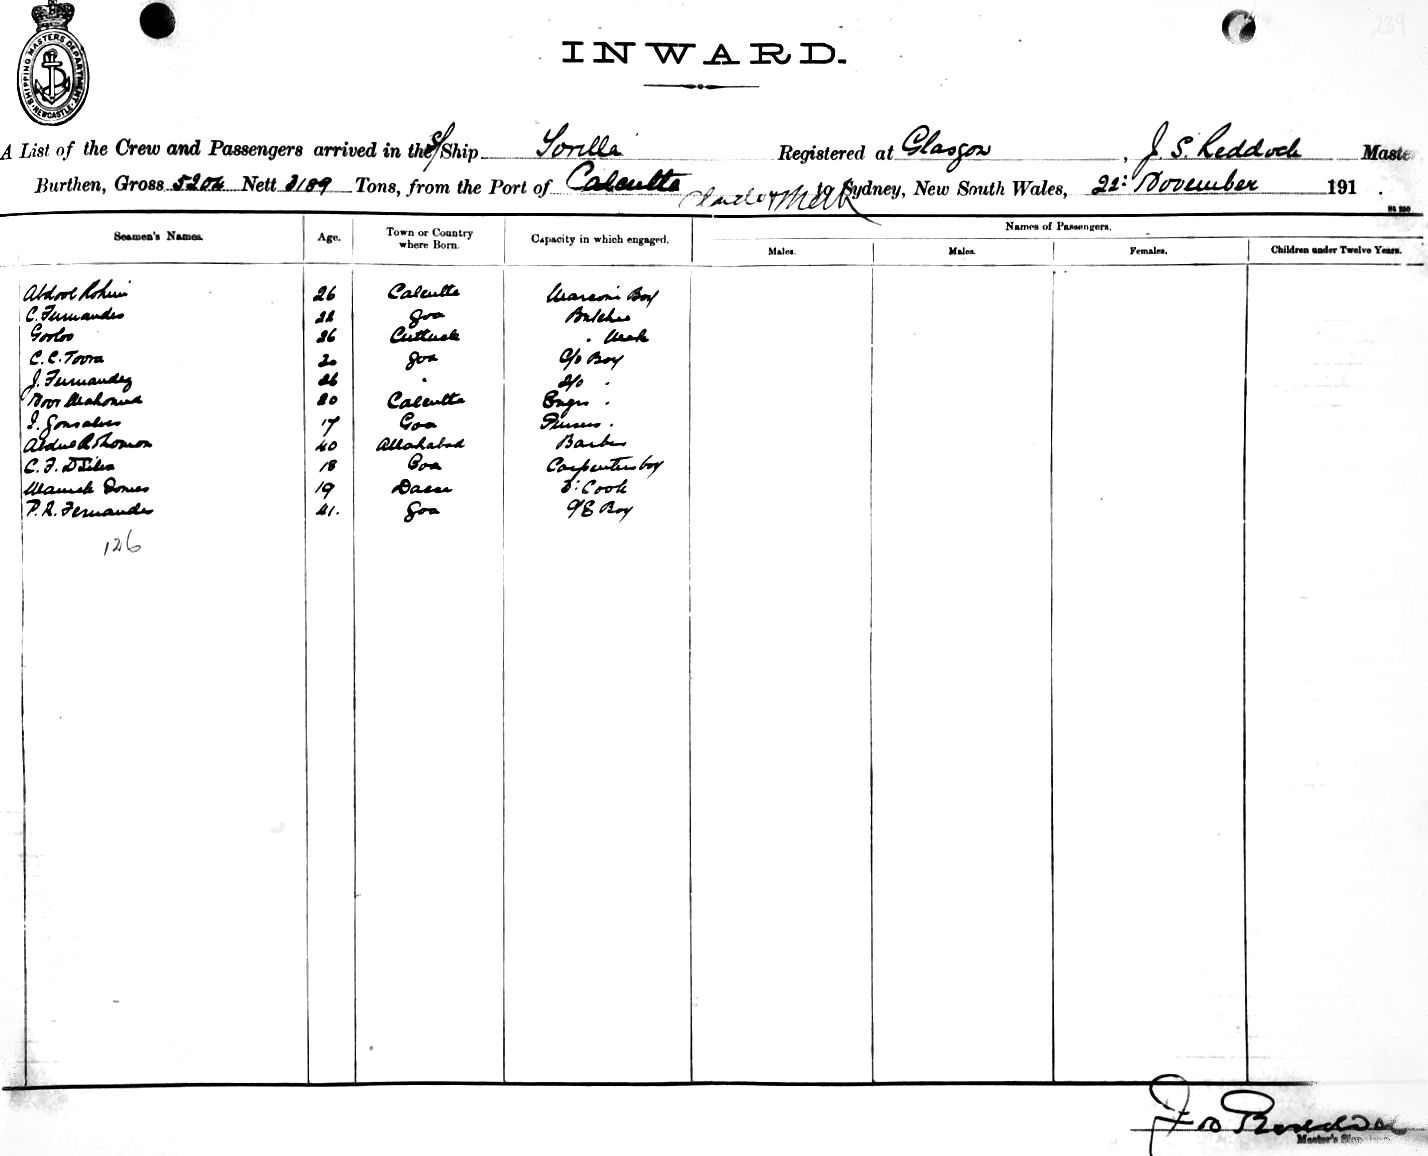 239
SHIPPING MASTERS DEPARTMENT NEWCASTLE
INWARD.
A List of the Crew and Passengers arrived in the S/Ship Registered at Glasgow, J. S. Reddock Master
Burthen, Gross 5204 Nett 3189 Tons, from the Port of Calcutta to Sydney, New South Wales, 22: November 191 .
Seamen's Names. Age. Town or Country where Born. Capacity in which engaged. Names of Passengers.
Males. Males. Females. Children under Twelve Years.
Abdool Rohim 26 Calcutta Marconi Boy
C. Fernandes 22 Goa Butcher
26 Cuttack " Mate
C. C. Toora 20 Goa C/O Boy
J. Fernandez 26 " 2/O "
Noor Mahomed 20 Calcutta Engrs "
I. Gonsalves 17 Goa "
Abdul 40 Allahabad Barber
C. F. DSilva 18 Goa Carpenters boy
Gomes 19 Dacca Cook
P. R. Fernandes 21. Goa Boy
126
Master's